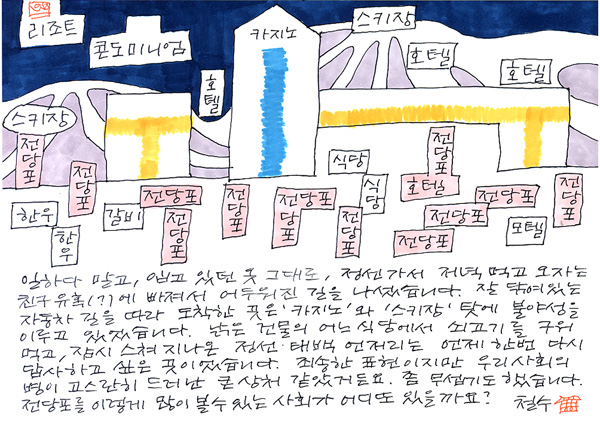 리조트
콘도미니엄
카지노
스키장
호텔
호텔
호텔
스키장
전당포
전당포
전당포
전당포
전당포
전당포
전당포
전당포
식당
식당
전당포
호텔
전당포
전당포
전당포
전당포
한우
한우
갈비
모텔
일하다 말고, 입고 있던 옷 그대로, 정선 가서 저녁 먹고 오자는
친구 유혹(?)에 빠져서 어두워진 길을 나섰습니다. 잘 닦여있는
자동차 길을 따라 도착한 곳은 '카지노'와 '스키장' 탓에 불야성을
이루고 있었습니다. 낡은 건물의 어느 식당에서 쇠고기를 구워
먹고, 잠시 스쳐 지나온 정선·태백 언저리는 언제 한번 다시
답사하고 싶은 곳이었습니다. 죄송한 표현이지만 우리 사회의
병이 고스란히 드러난 큰 상처 같았거든요. 좀 무섭기도 했습니다.
전당포를 이렇게 많이 볼 수 있는 사회가 어디 또 있을까요? 철수